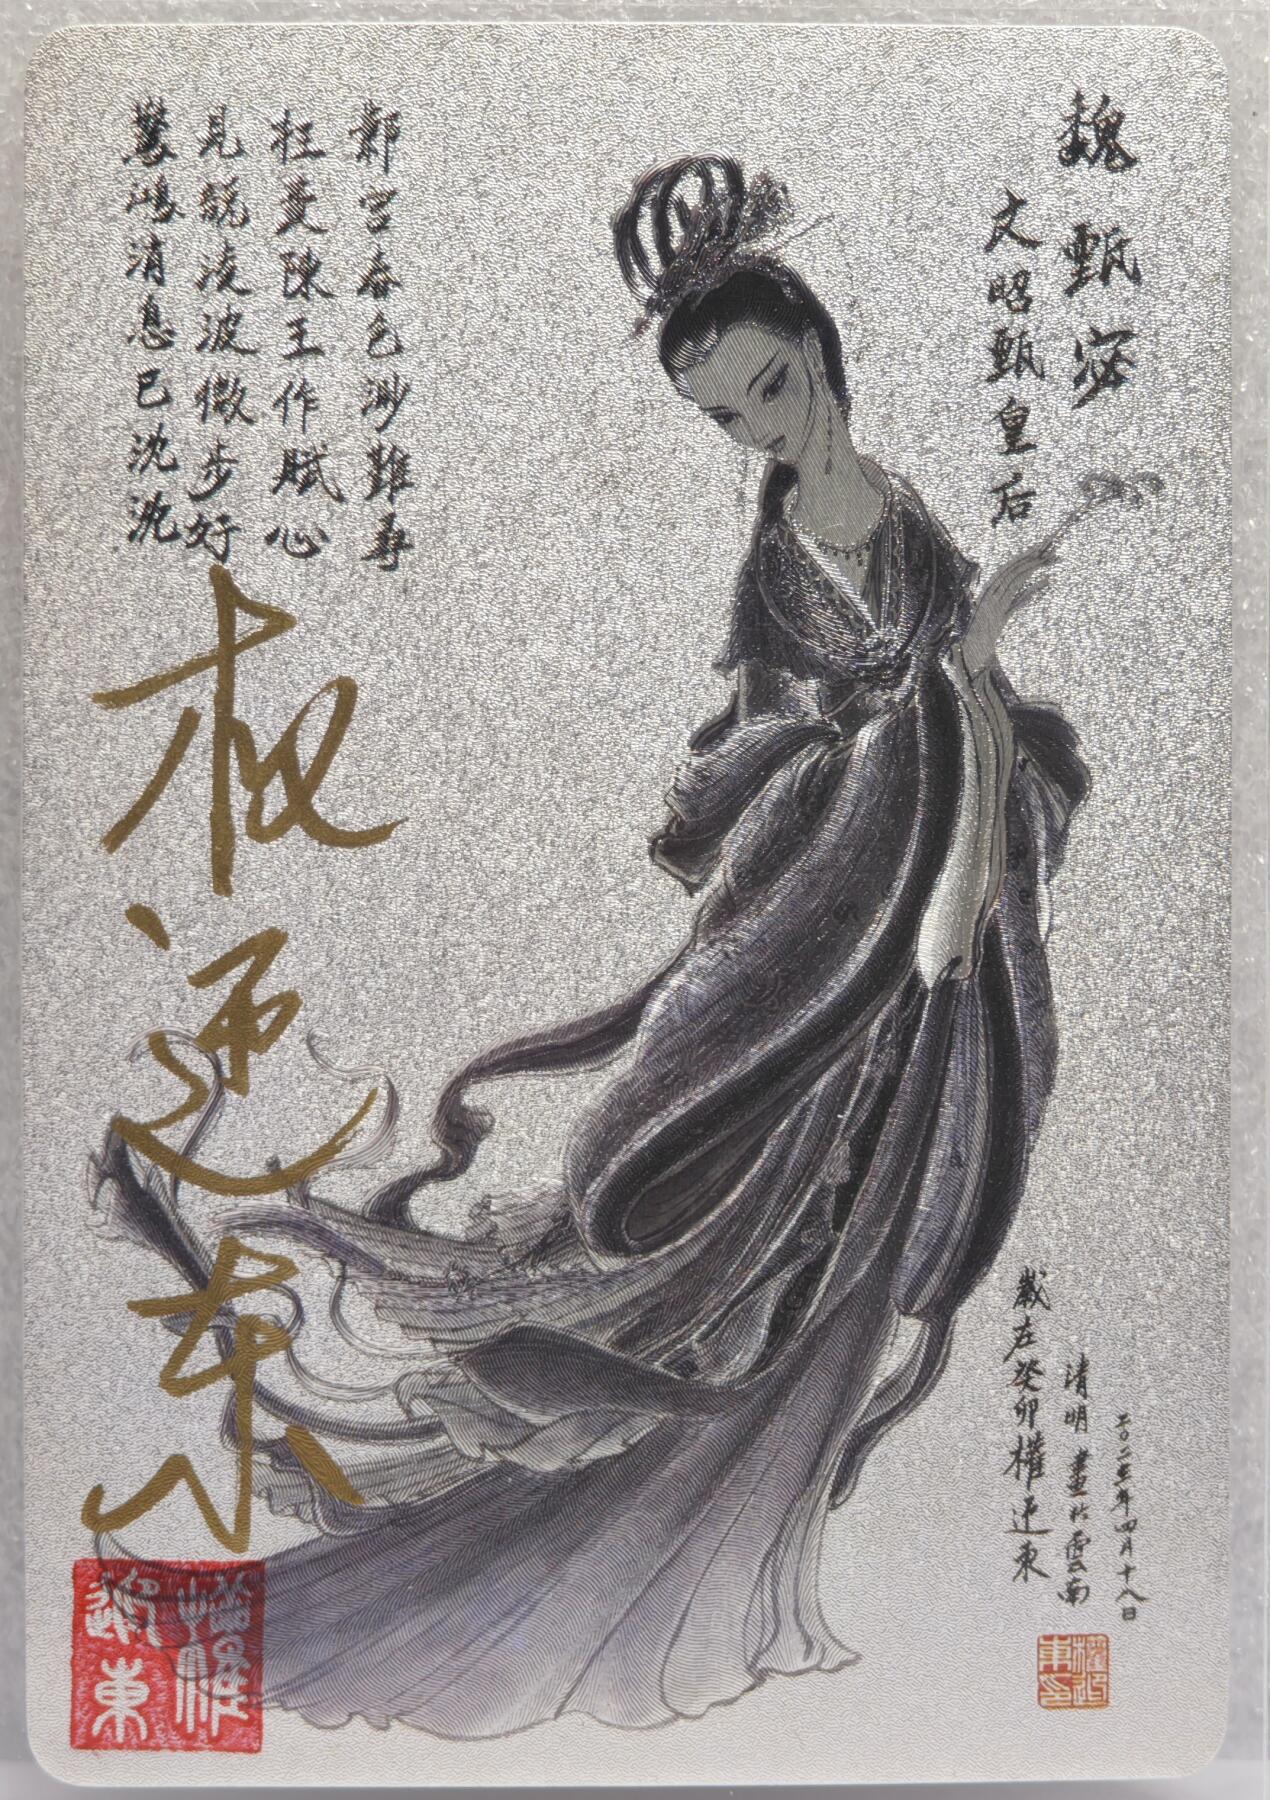 魏 甄宓
文昭甄皇后
鄴宮春色渺難尋
枉費陳王作賦心
見說凌波微步好
驚鴻消息已沈沈
权迎东
歲在癸卯權迎東
清明畫於雲南
二〇二三年四月十八日
權迎東
權迎東印